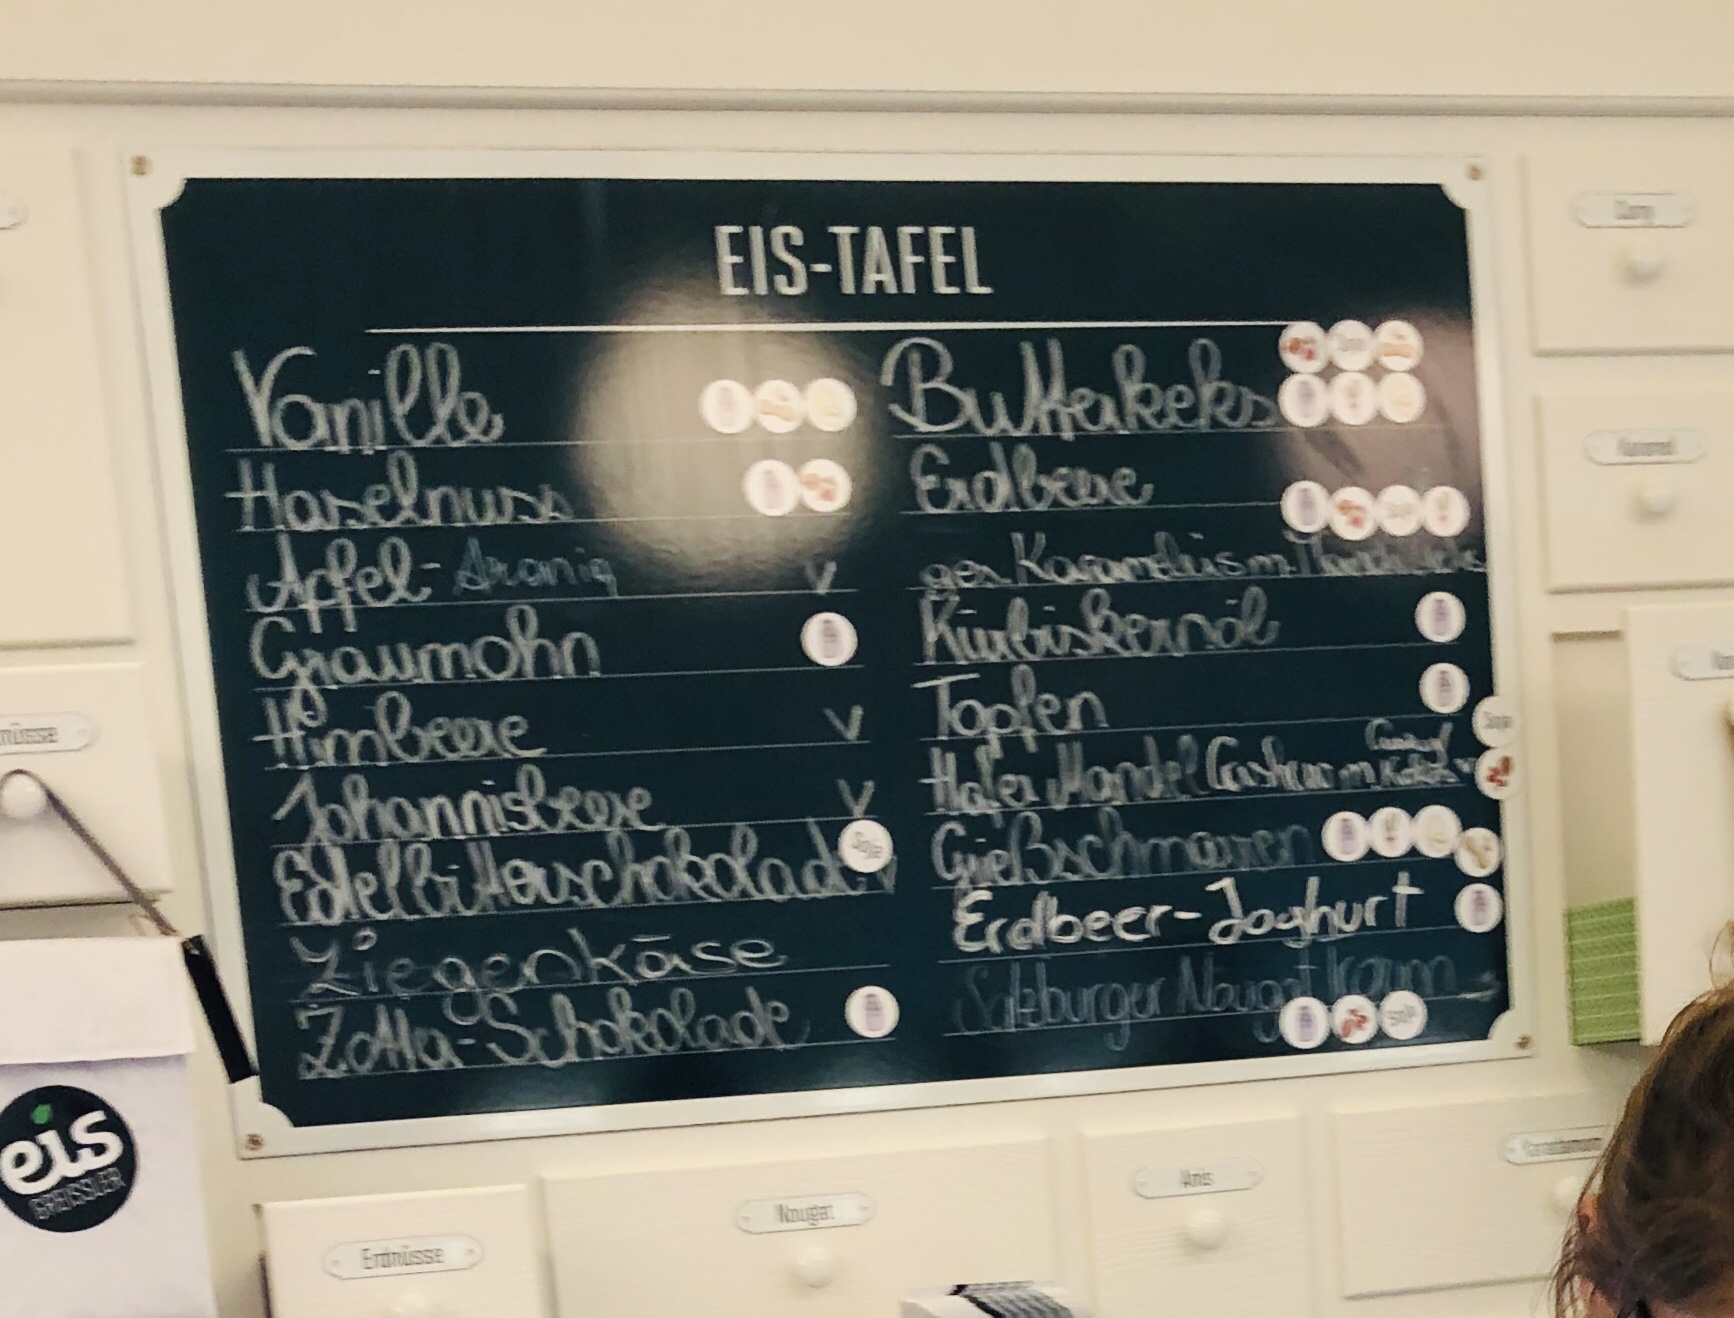 EIS-TAFEL
Vanille
Haselnuss
Apfel-
V
Graumohn
Himbeere
V
Johannisbeere
V
Edelbitterschokolade
Soja
V
Ziegenkäse
Zotta-Schokolade
Butterkeks
Soja
Erdbeere
Soja
ges. Karamell
Kürbiskernöl
Topfen
Hafer Mandel Cashew m.
Soja
Grießschmarren
Erdbeer-Joghurt
Salzburger Nougattraum
Soja
nüsse
eis
GREISSLER
Erdnüsse
Nougat
Anis
Curry
Karamel